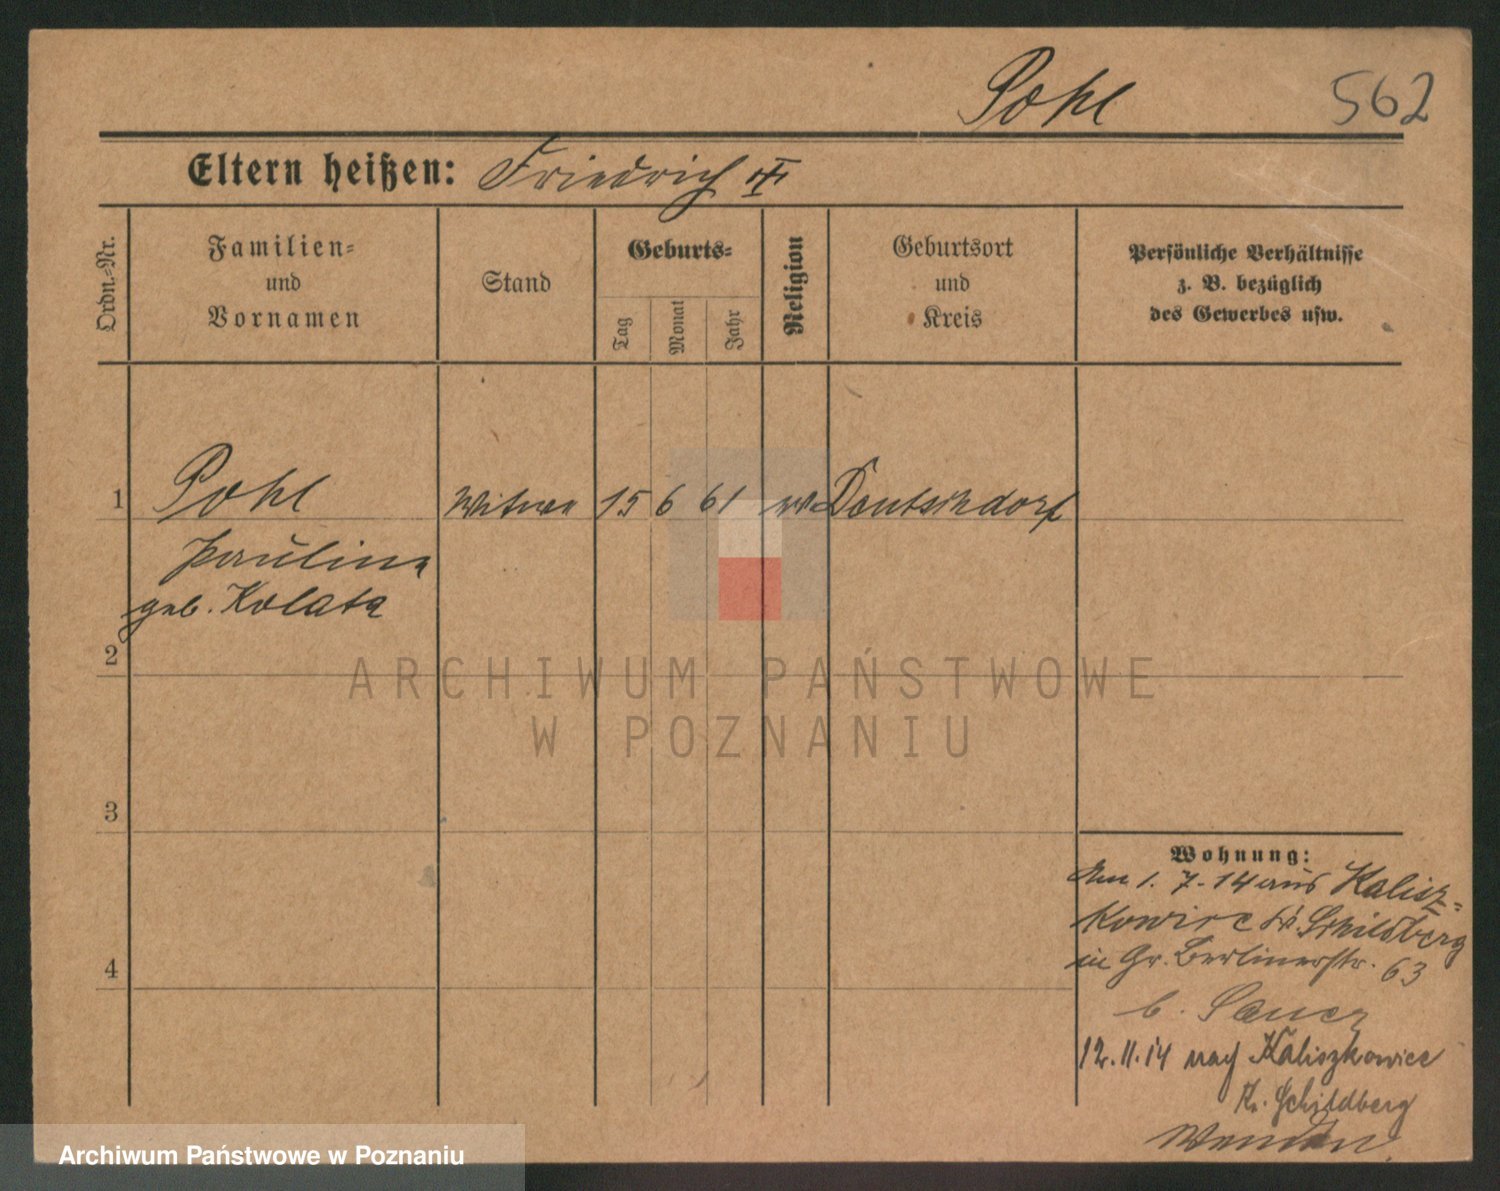 Pohl 562
Eltern heißen: Friedrich
Ordn.-Nr.
Familien-
und
Vornamen
Stand
Geburts-
Tag
Monat
Jahr
Religion
Geburtsort
und
Kreis
Persönliche Verhältnisse
z. B. bezüglich
des Gewerbes usw.
1 Pohl Witwe 15 6 61 ev Deutschdorf
Pauline
geb. Kolata
2
3
4
Wohnung:
Am 1. 7. 14 aus Kalisz-
kowice Kr. Schildberg
in Gr. Berlinerstr. 63
b.
12.11.14 nach Kaliszkowice
Kr. Schildberg
ARCHIWUM PAŃSTWOWE
W POZNANIU
Archiwum Państwowe w Poznaniu